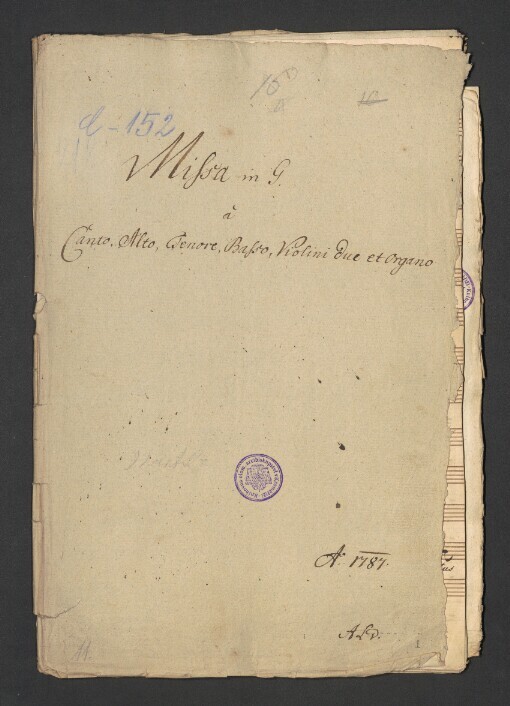 16
a
10
C-152
Missa in G.
à
Canto, Alto, Tenore, Basso, Violini due et Organo
Aº 1787.
A L D.
1
11.